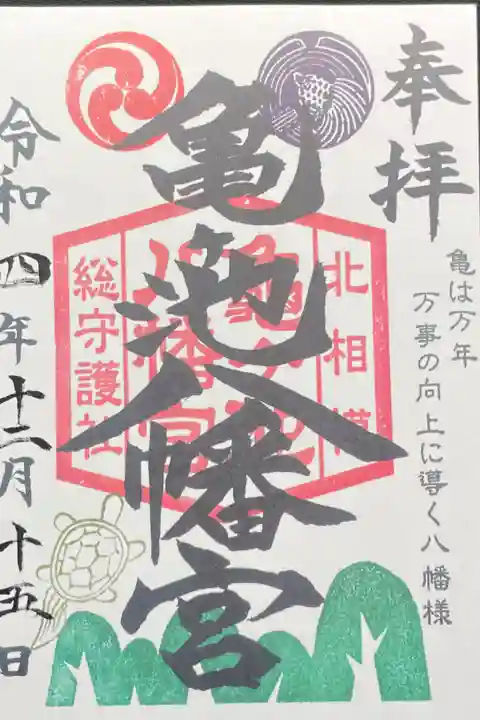 奉拝
亀は万年
万事の向上に導く八幡様
亀池八幡宮
北相模
総守護社
令和四年十二月十五日